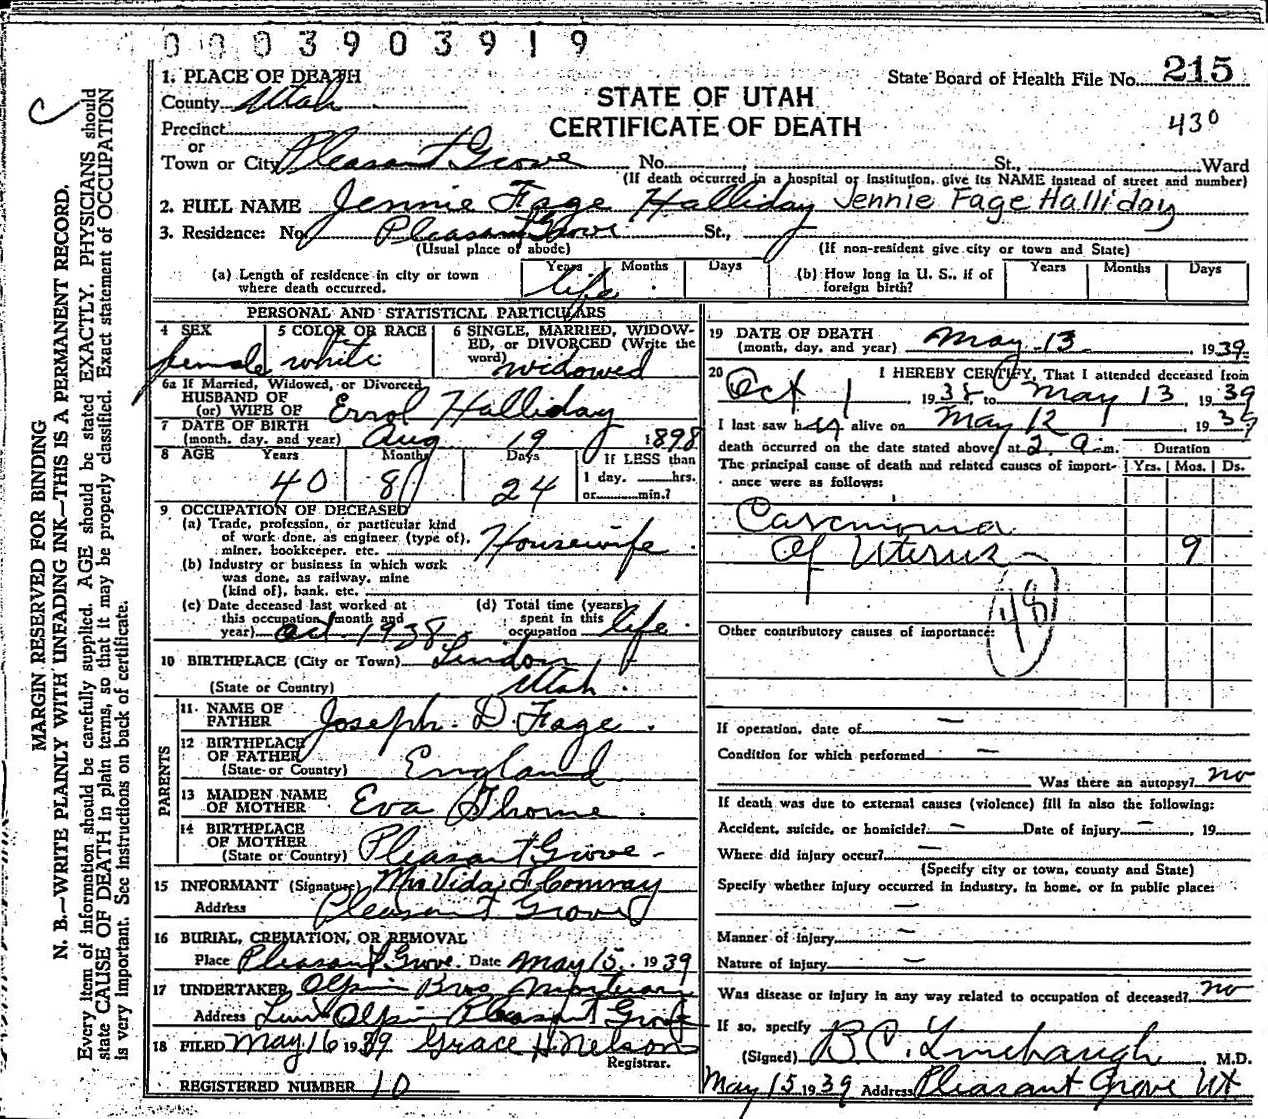 0003903919
1. PLACE OF DEATH
State Board of Health File No. 215
County Utah
STATE OF UTAH
CERTIFICATE OF DEATH
430
Precinct
or
Town or City Pleasant Grove No. St., Ward
(If death occurred in a hospital or institution, give its NAME instead of street and number)
2. FULL NAME Jennie Fage Halliday Jennie Fage Halliday
3. Residence: No. Pleasant Grove St.,
(Usual place of abode) (If non-resident give city or town and State)
(a) Length of residence in city or town where death occurred. Years life Months Days
(b) How long in U. S., if of foreign birth? Years Months Days
PERSONAL AND STATISTICAL PARTICULARS
4 SEX female
5 COLOR OR RACE white
6 SINGLE, MARRIED, WIDOWED, or DIVORCED (Write the word) widowed
6a If Married, Widowed, or Divorced
HUSBAND OF
(or) WIFE OF Errol Halliday
7 DATE OF BIRTH
(month, day, and year) Aug 19 1898
8 AGE Years 40 Months 8 Days 24 If LESS than 1 day, hrs. or min.?
9 OCCUPATION OF DECEASED
(a) Trade, profession, or particular kind of work done, as engineer (type of), miner, bookkeeper, etc. Housewife
(b) Industry or business in which work was done, as railway, mine (kind of), bank, etc.
(c) Date deceased last worked at this occupation (month and year) Oct. 1938
(d) Total time (years) spent in this occupation life
10 BIRTHPLACE (City or Town) Lindon
(State or Country) Utah
PARENTS
11. NAME OF FATHER Joseph D. Fage
12 BIRTHPLACE OF FATHER (State or Country) England
13 MAIDEN NAME OF MOTHER Eva Thorne
14 BIRTHPLACE OF MOTHER (State or Country) Pleasant Grove
15 INFORMANT (Signature) Mrs Vida F Conway
Address Pleasant Grove
16 BURIAL, CREMATION, OR REMOVAL
Place Pleasant Grove Date May 15, 1939
17 UNDERTAKER Olpin Bros Mortuary
Address Olpin Pleasant Grove
18 FILED May 16 1939 Grace H Nelson
Registrar.
REGISTERED NUMBER 10
19 DATE OF DEATH
(month, day, and year) May 13, 1939
20 I HEREBY CERTIFY, That I attended deceased from
Oct 1 1938 to May 13, 1939
I last saw her alive on May 12, 1939
death occurred on the date stated above, at 2 a m.
The principal cause of death and related causes of importance were as follows:
Duration Yrs. Mos. Ds.
Carcinoma
Of Uterus 9
48
Other contributory causes of importance:
If operation, date of —
Condition for which performed —
Was there an autopsy? no
If death was due to external causes (violence) fill in also the following:
Accident, suicide, or homicide? — Date of injury —, 19
Where did injury occur? —
(Specify city or town, county and State)
Specify whether injury occurred in industry, in home, or in public place:
—
Manner of injury —
Nature of injury —
Was disease or injury in any way related to occupation of deceased? no
If so, specify
(Signed) B.C. Linebaugh M.D.
May 15 1939 Address Pleasant Grove Ut
MARGIN RESERVED FOR BINDING
N. B.—WRITE PLAINLY WITH UNFADING INK—THIS IS A PERMANENT RECORD.
Every item of information should be carefully supplied. AGE should be stated EXACTLY. PHYSICIANS should
state CAUSE OF DEATH in plain terms, so that it may be properly classified. Exact statement of OCCUPATION
is very important. See instructions on back of certificate.